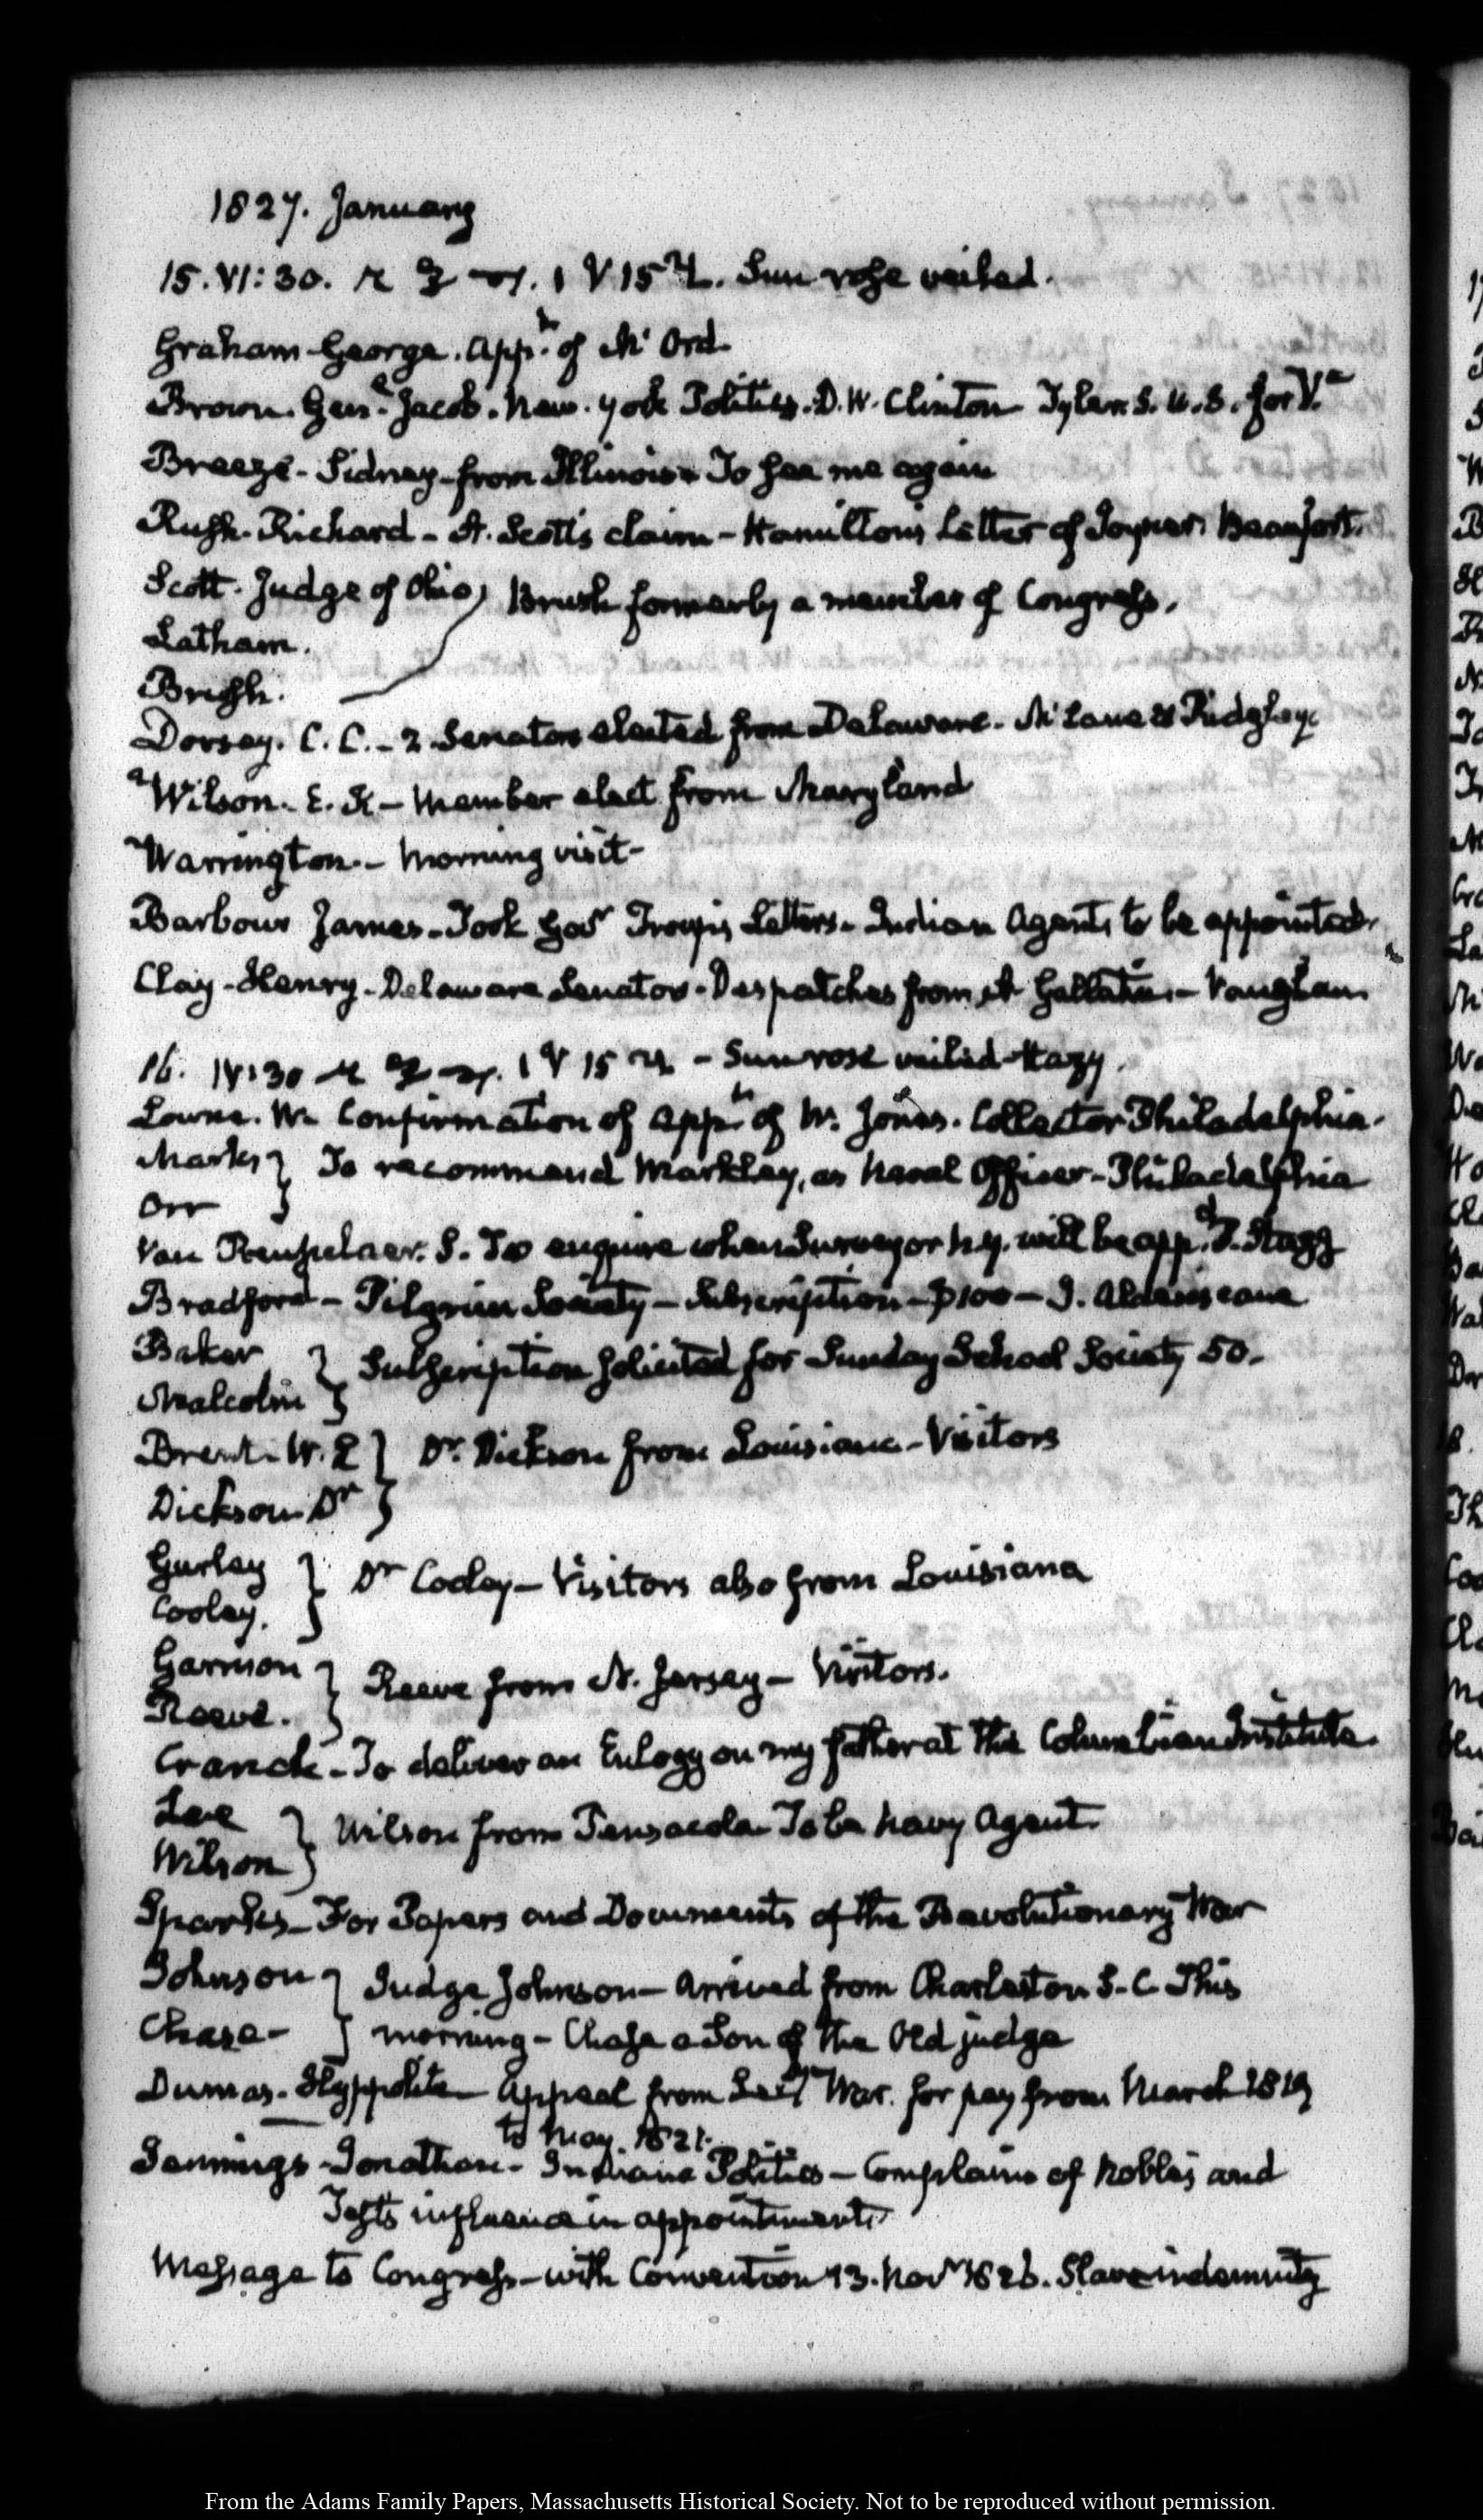 1827. January
15. VI:30. 1 V 15 Sun rose veiled.
Graham George. Appt. of McOrd.
Brown. Genl. Jacob. New-York Politics. D. W. Clinton Tyler S. U. S. for Va
Breeze - Sidney from Illinois - To see me again
Rush. Richard - A. Scott's claim - Hamilton's Letter of Joyner Beaufort.
Scott. Judge of Ohio, Brush formerly a member of Congress.
Latham.
Brush.
Dorsey. C. C. - 2 Senators elected from Delaware. McLane & Ridgley
Wilson. E. K - Member elect from Maryland
Warrington. - Morning visit -
Barbour James - Took Govr Troup's Letters - Indian Agents to be appointed.
Clay - Henry - Delaware Senator - Despatches from A Gallatin. - Vaughan
16. IV:30 1 V 15 - Sun rose veiled - Hazy.
Lowrie. W. Confirmation of appt. of W. Jones. Collector Philadelphia.
Marks } To recommend Markley, as Naval Officer - Philadelphia
Orr }
Van Renselaer. S. To enquire when Surveyor N.Y. will be appd. J. Stagg
Bradford - Pilgrim Society - Subscription - $100 -
Baker } Subscription solicited for Sunday School Society 50.
Malcolm }
Brent. W. L } Dr. Dickson from Louisiana - Visitors
Dickson Dr }
Gurley } Dr Cooley - Visitors also from Louisiana
Cooley. }
Garrison } Reeve from N. Jersey - Visitors.
Reeve. }
Cranch - To deliver an Eulogy on my father at the Columbian Institute.
Lee } Wilson from Pensacola To be Navy Agent
Wilson }
Sparks - For Papers and Documents of the Revolutionary War
Johnson } Judge Johnson - arrived from Charleston S. C. This
Chase - } morning - Chase a Son of the Old judge
Dumas. Hyppolite Appeal from Secy War. for pay from March 1819
to May. 1821.
Jennings - Jonathan - Indiana Politics - Complains of Noble's and
Test's influence in appointments
Message to Congress - with Convention 13. Novr 1826. Slave indemnity
From the Adams Family Papers, Massachusetts Historical Society. Not to be reproduced without permission.